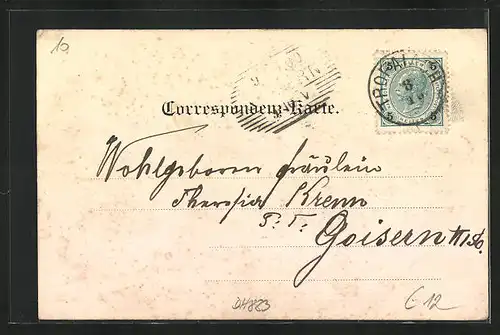 10
Correspondenz-Karte.
TROFAIACH
8
5 5
Wohlgeboren Fräulein
Theresia Krenn
P. T.
Goisern
DH823
€ 12